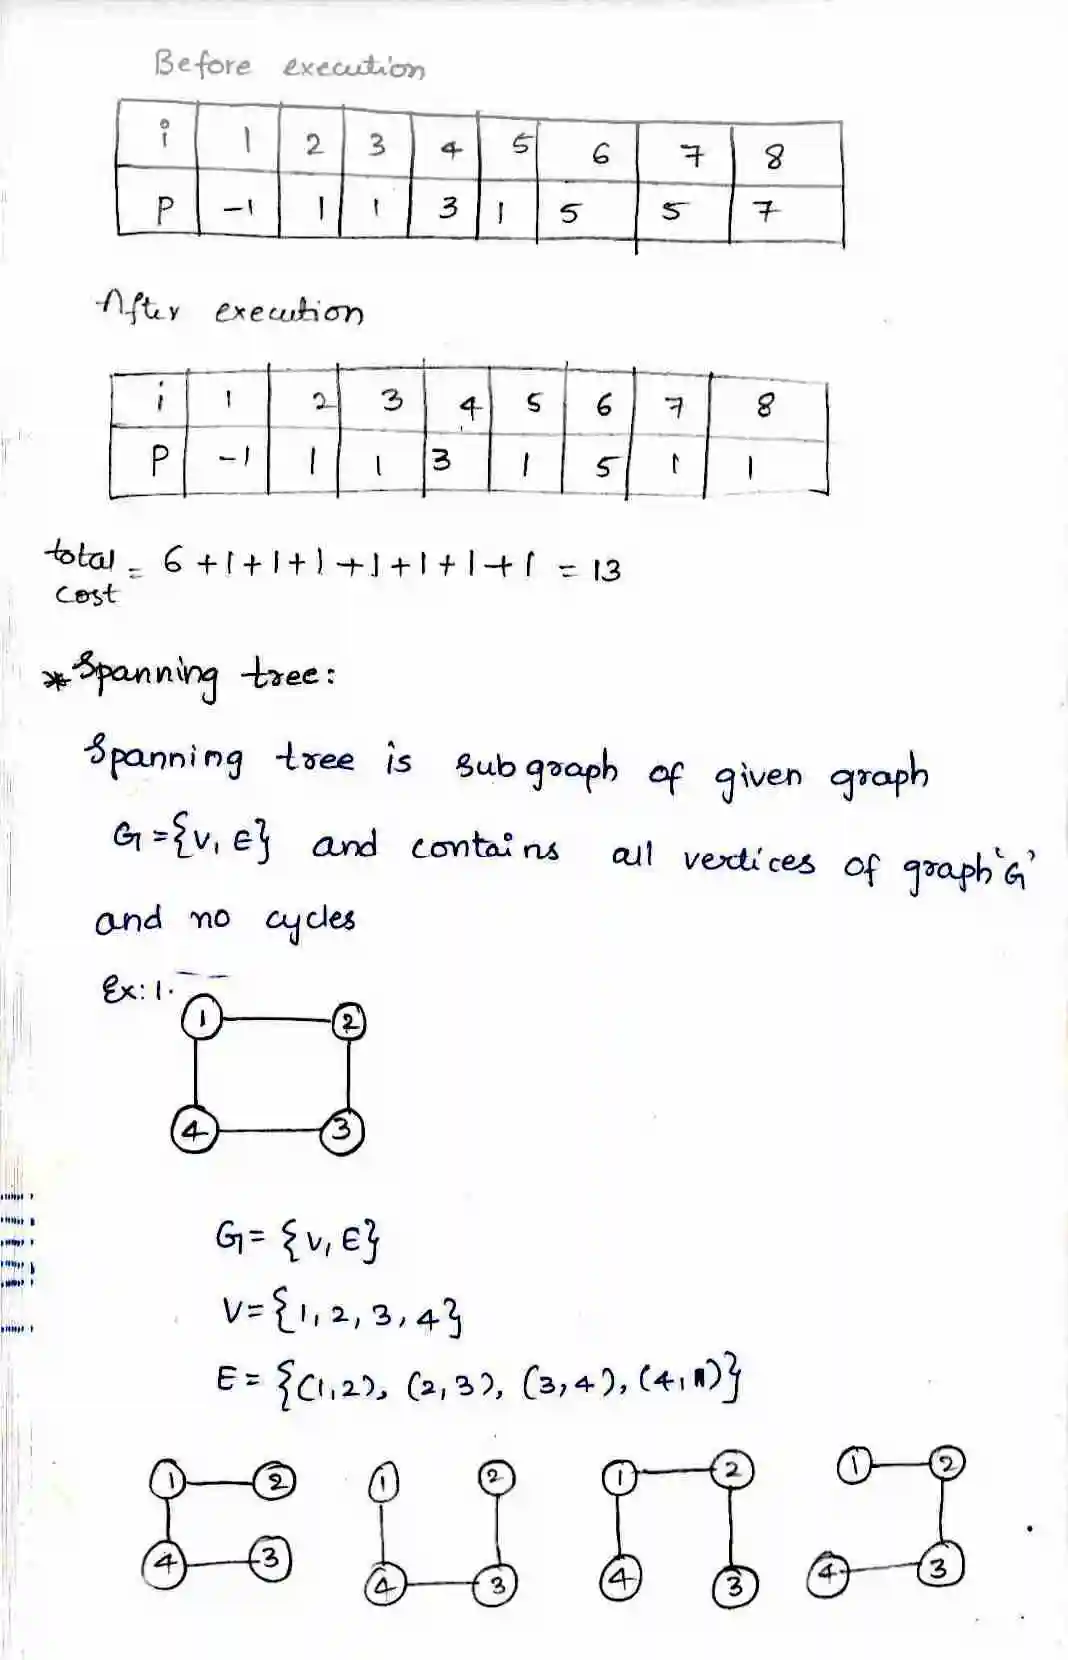 Before execution
i 1 2 3 4 5 6 7 8
P -1 1 1 3 1 5 5 7
After execution
i 1 2 3 4 5 6 7 8
P -1 1 1 3 1 5 1 1
total cost = 6+1+1+1+1+1+1+1 = 13
* Spanning tree:
Spanning tree is subgraph of given graph
G={V, E} and contains all vertices of graph 'G'
and no cycles
Ex: 1.
1 2
4 3
G= {V, E}
V={1, 2, 3, 4}
E= {(1,2), (2,3), (3,4), (4,1)}
1 2 1 2 1 2 1 2
4 3 4 3 4 3 4 3